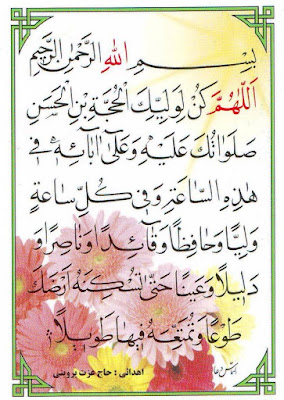 بِسْمِ اللهِ الرَّحْمٰنِ الرَّحِيمِ
اَللّٰهُمَّ كُنْ لِوَلِيِّكَ الْحُجَّةِ بْنِ الْحَسَنِ
صَلَوَاتُكَ عَلَيْهِ وَعَلَىٰ آبَائِهِ فِي
هٰذِهِ السَّاعَةِ وَفِي كُلِّ سَاعَةٍ
وَلِيًّا وَحَافِظًا وَقَائِدًا وَنَاصِرًا وَ
دَلِيلًا وَعَيْنًا حَتَّىٰ تُسْكِنَهُ أَرْضَكَ
طَوْعًا وَتُمَتِّعَهُ فِيهَا طَوِيلًا
التماس دعا
اهدائی : حاج عزت پروینی